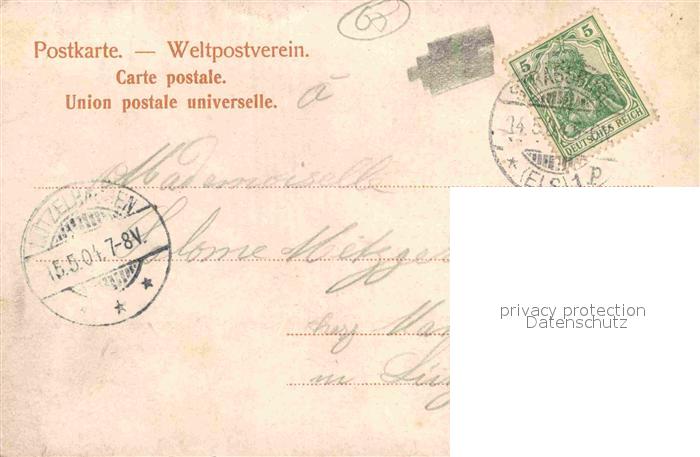 67
Postkarte. — Weltpostverein.
Carte postale.
Union postale universelle.
à
5 5
DEUTSCHES REICH
STRASSBURG
14.5.
(ELS) 1 p
Mademoiselle
Salome Metzger
in
LÜTZELHAUSEN
15.5.04.7-8V.
privacy protection
Datenschutz